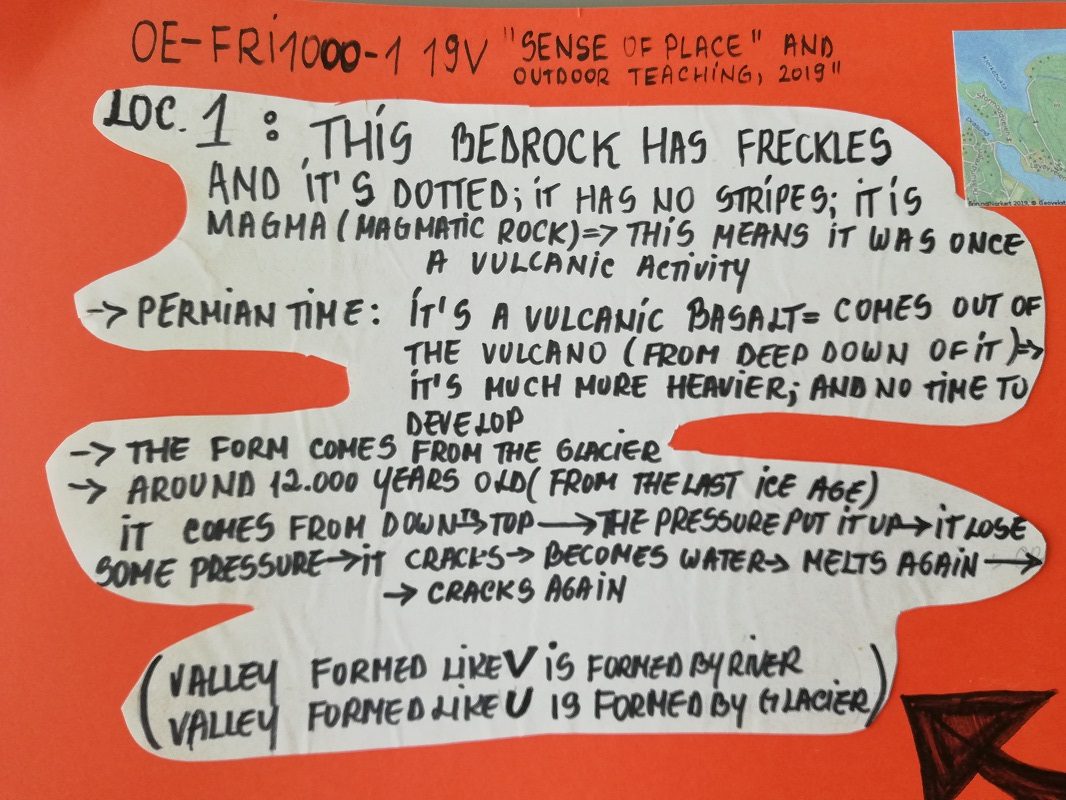 OE-FRI1000-1 19V "SENSE OF PLACE" AND
OUTDOOR TEACHING, 2019"
LOC. 1 : THIS BEDROCK HAS FRECKLES
AND IT'S DOTTED; IT HAS NO STRIPES; IT IS
MAGMA (MAGMATIC ROCK)=> THIS MEANS IT WAS ONCE
A VULCANIC ACTIVITY
-> PERMIAN TIME: IT'S A VULCANIC BASALT= COMES OUT OF
THE VULCANO (FROM DEEP DOWN OF IT)=>
IT'S MUCH MURE HEAVIER; AND NO TIME TO
DEVELOP
-> THE FORM COMES FROM THE GLACIER
-> AROUND 12.000 YEARS OLD (FROM THE LAST ICE AGE)
IT COMES FROM DOWN TO TOP -> THE PRESSURE PUT IT UP -> IT LOSE
SOME PRESSURE -> IT CRACKS -> BECOMES WATER -> MELTS AGAIN ->
-> CRACKS AGAIN
(VALLEY FORMED LIKE V IS FORMED BY RIVER
VALLEY FORMED LIKE U IS FORMED BY GLACIER)